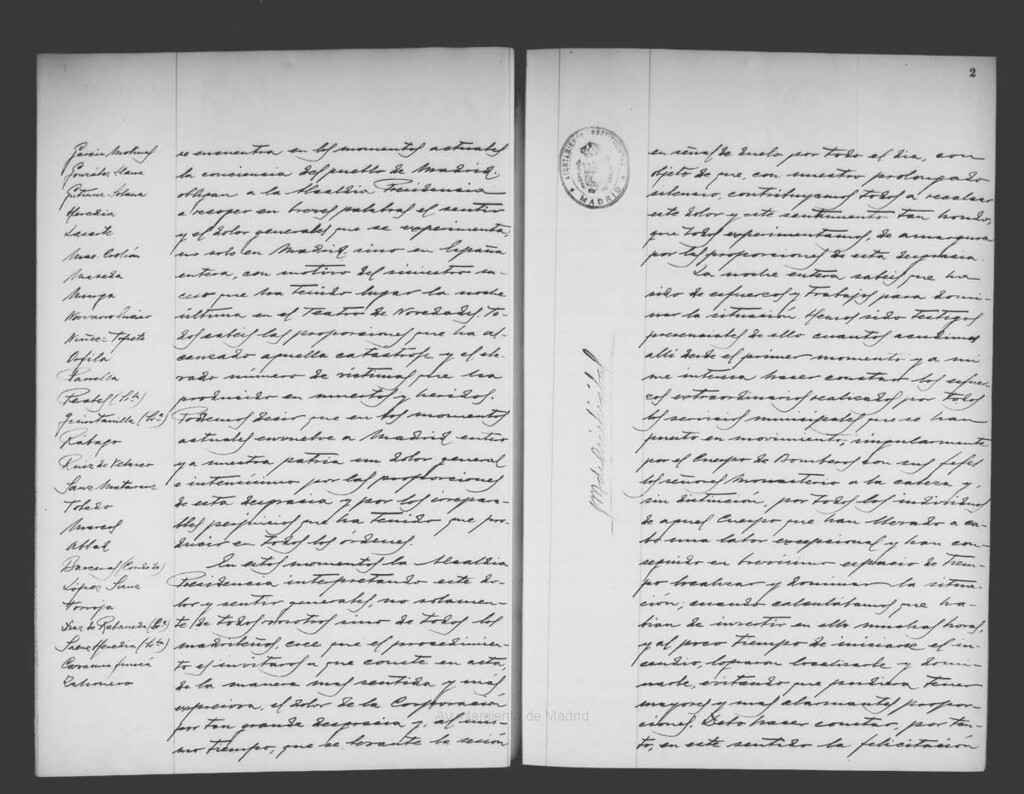 García Molinas
González Llana
Gutiérrez Solana
Heredia
Lasarte
Mac-Crohón
Maseda
Navarro
Núñez Topete
Parrella
Pestes (Srta)
Quintanilla (Srta)
Rabago
Ruiz de Velasco
Sanz Matamoros
Toledo
Marcos
Abbad
Barcenas (Conde de)
López Sanz
Torroja
Díaz de Rabaneda (Srta)
Saenz Heredia (Srta)
Zahonero
se encuentra en los momentos actuales
la conciencia del pueblo de Madrid.
obligan a la Alcaldía Presidencia
a recoger en breves palabras el sentir
y el dolor generales que se experimenta,
no solo en Madrid sino en España
entera, con motivo del siniestro su-
ceso que ha tenido lugar la noche
última en el Teatro de Novedades. To-
dos sabéis las proporciones que ha al-
canzado aquella catástrofe y el ele-
vado número de víctimas que ha
producido en muertos y heridos.
Podemos decir que en los momentos
actuales envuelve a Madrid entero
y a nuestra patria un dolor general
e intensísimo por las proporciones
de esta desgracia y por los irrepara-
bles perjuicios que ha tenido que pro-
ducir en todos los órdenes.
En estos momentos la Alcaldía
Presidencia interpretando este do-
lor y sentir generales, no solamen-
te de todos vosotros sino de todos los
madrileños, cree que el procedimien-
to es invitaros a que conste en acta,
de la manera mas sentida y más
expresiva, el dolor de la Corporación
por tan grande desgracia y, al mis-
mo tiempo, que se levante la sesión
2
AYUNTAMIENTO CONSTITUCIONAL
MADRID
en señal de duelo por todo el día, con
objeto de que, con nuestro prolongado
silencio, contribuyamos todos a recalcar
este dolor y este sentimiento tan hondo,
que todos experimentamos, de amargura
por las proporciones de esta desgracia.
La noche entera sabéis que ha
sido de esfuerzos y trabajos para domi-
nar la situación. Hemos sido testigos
presenciales de ello cuantos acudimos
allí desde el primer momento y a mi
me interesa hacer constar los esfuer-
zos extraordinarios realizados por todos
los servicios municipales que se han
puesto en movimiento, singularmente
por el Cuerpo de Bomberos con sus jefes
los señores Monasterio a la cabeza y,
sin distinción, por todos los individuos
de aquel Cuerpo que han llevado a ca-
bo una labor excepcional y han con-
seguido en brevísimo espacio de tiem-
po localizar y dominar la situa-
ción; cuando calculábamos que ha-
bían de invertir en ello muchas horas,
y al poco tiempo de iniciarse el in-
cendio, lograron localizarle y domi-
narle, evitando que pudiera tener
mayores y mas alarmantes propor-
ciones. Debo hacer constar, por tan-
to, en este sentido la felicitación
Ayuntamiento de Madrid